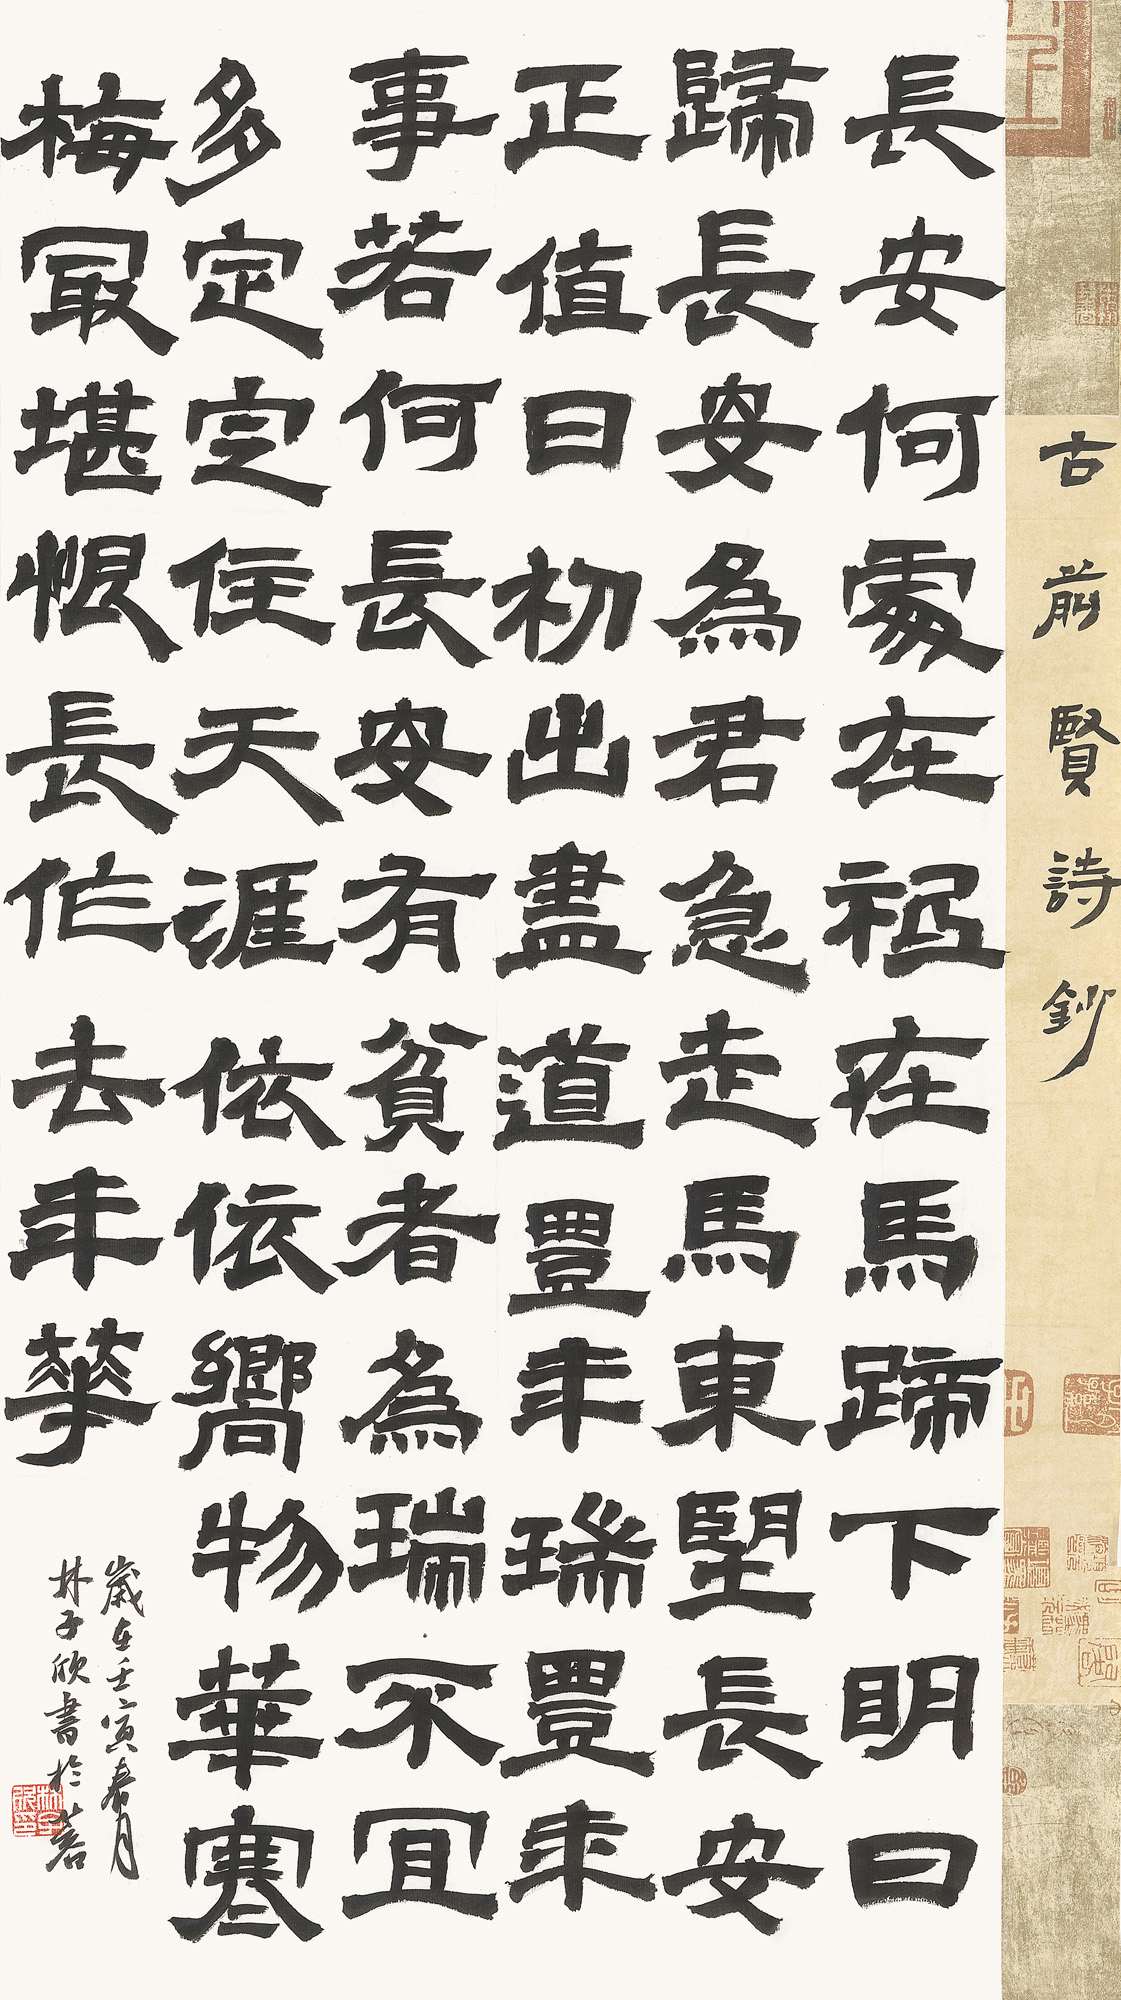 古前賢詩鈔
長安何處在祗在馬蹄下明日
歸長安為君急走馬東望長安
正值日初出盡道豐年瑞豐年
事若何長安有貧者為瑞不宜
多定定住天涯依依嚮物華寒
梅最堪恨長作去年華
歲在壬寅春月
林子欣書於茗